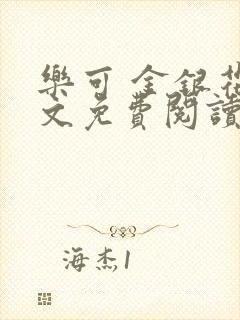 樂可 金銀花
文免費閱讀
海杰1